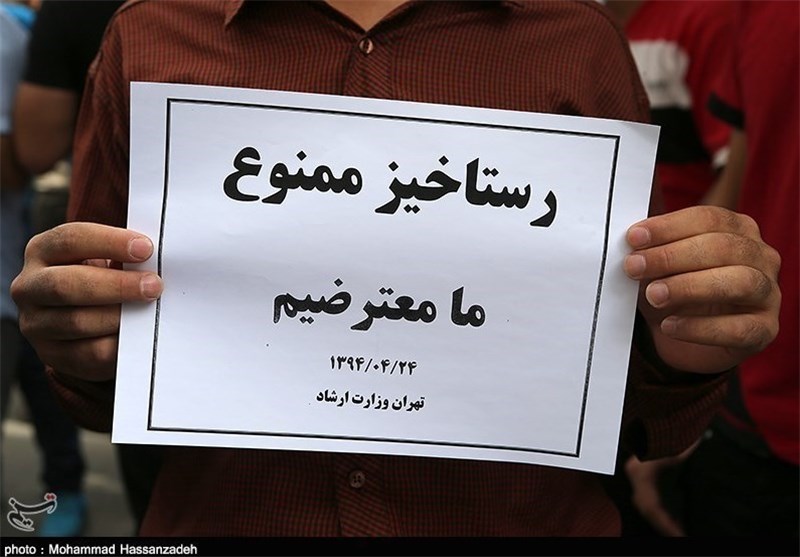 رستاخیز ممنوع
ما معترضیم
۱۳۹۴/۰۴/۲۴
تهران وزارت ارشاد
تسنیم
photo : Mohammad Hassanzadeh